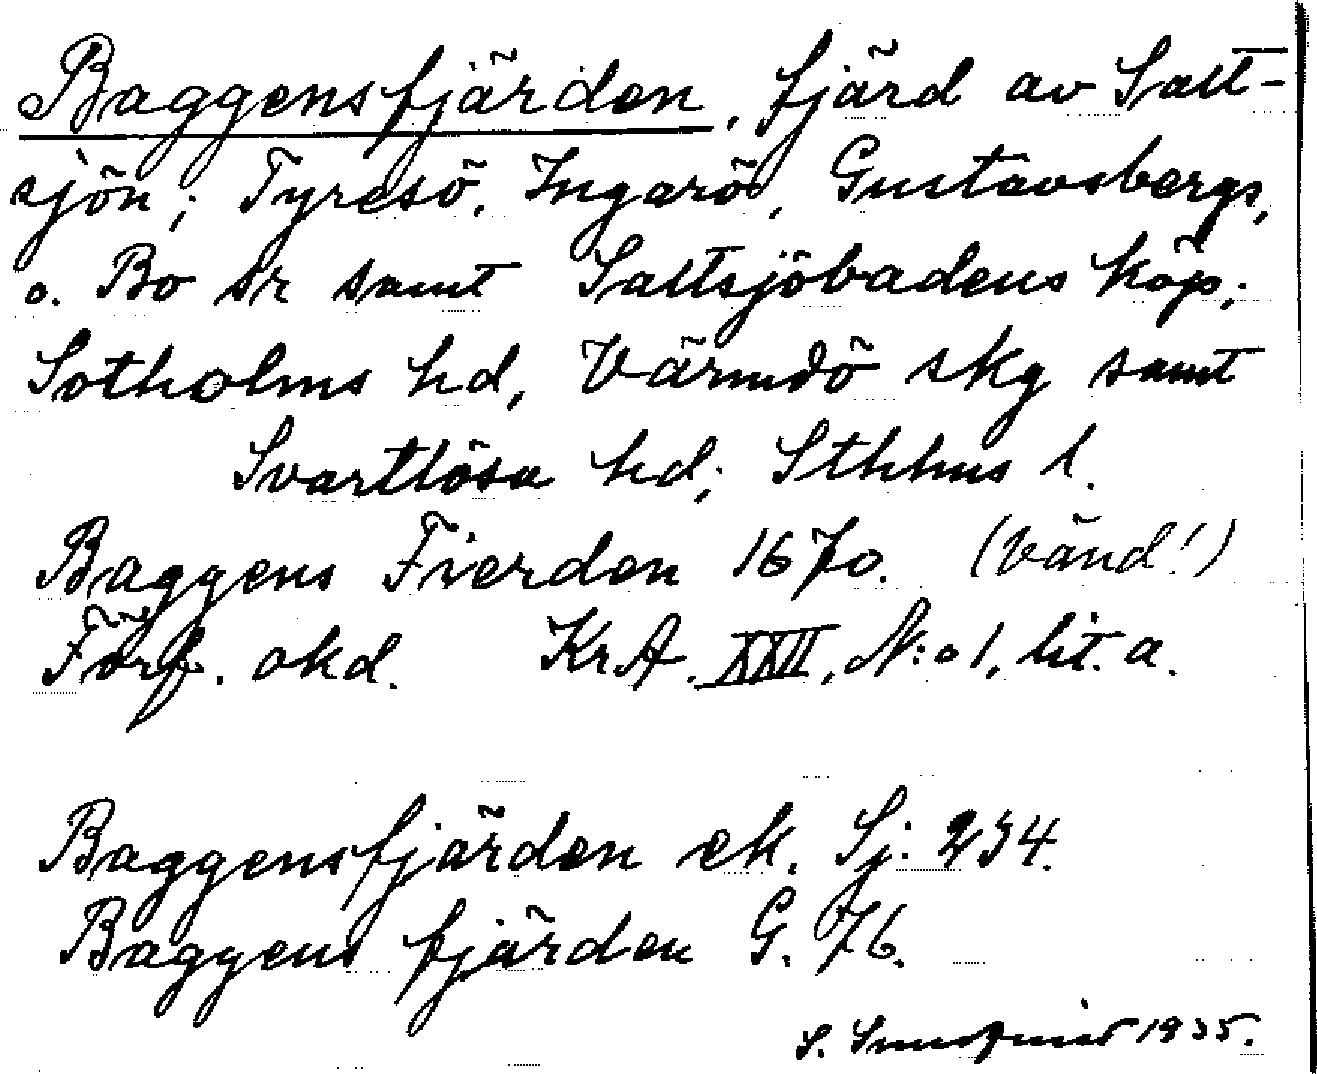 Baggensfjärden, fjärd av Salt-
sjön; Tyresö, Ingarö, Gustavsbergs,
o. Bo sr samt Saltsjöbadens köp;
Sotholms hd, Värmdö skg samt
Svartlösa hd; Sthlms l.
Baggens Fierden 1670. (Vänd!)
Förf. okd. KrA. XXII, N:o 1, lit. a.
Baggensfjärden ek. Sj: 234.
Baggens fjärden G. 76.
S. 1935.